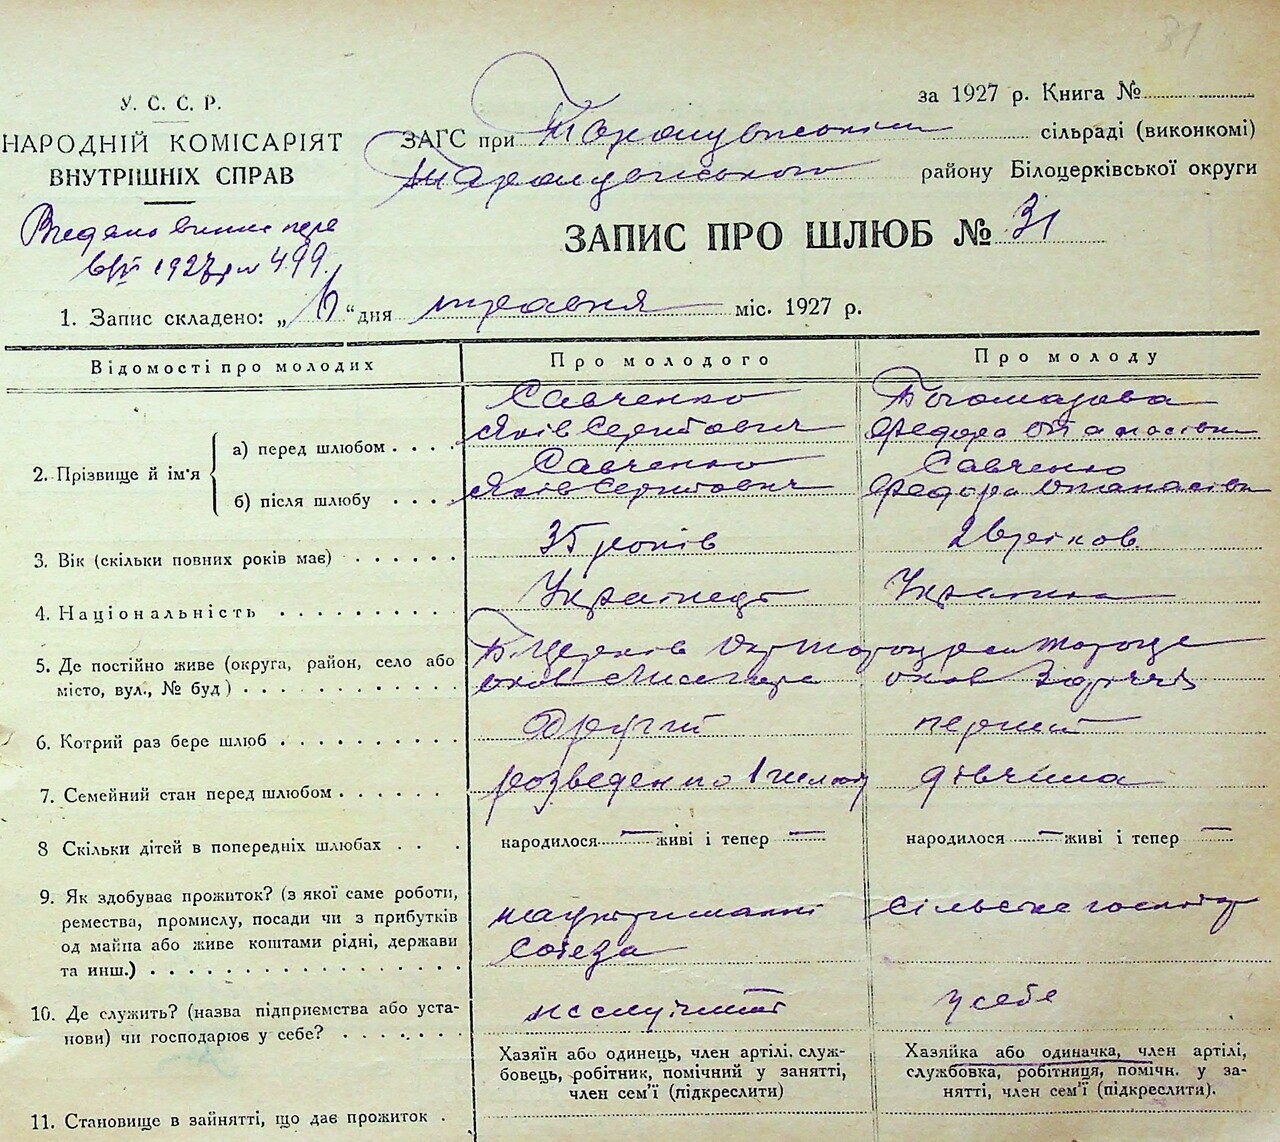 31
У. С. С. Р.
НАРОДНІЙ КОМІСАРІЯТ
ВНУТРІШНІХ СПРАВ
за 1927 р. Книга №
ЗАГС при Таращанськім сільраді (виконкомі)
Таращанського району Білоцерківської округи
Видано
1927 р № 499.
ЗАПИС ПРО ШЛЮБ № 31
1. Запис складено: „ 6 “ дня травня міс. 1927 р.
Відомості про молодих
Про молодого
Про молоду
2. Прізвище й ім'я
а) перед шлюбом
Савченко
Яків Сергійович
Богомазова
Федора Опанасівна
б) після шлюбу
Савченко
Яків Сергійович
Савченко
Федора Опанасівна
3. Вік (скільки повних років має)
35 років
4. Національність
Українець
Українка
5. Де постійно живе (округа, район, село або
місто, вул., № буд)
Б Церків Окр Таращ район Тараща
окол Лисагора
окол Заріччя
6. Котрий раз бере шлюб
Другий
перший
7. Семейний стан перед шлюбом
розведен по 1 шлюбу
дівчина
8 Скільки дітей в попередніх шлюбах
народилося — живі і тепер —
народилося — живі і тепер —
9. Як здобуває прожиток? (з якої саме роботи,
ремества, промислу, посади чи з прибутків
од майна або живе коштами рідні, держави
та инш.)
на утриманні
собеза
сільське господ
10. Де служить? (назва підприємства або уста-
нови) чи господарює у себе?
не служить
у себе
11. Становище в зайнятті, що дає прожиток
Хазяїн або одинець, член артілі, служ-
бовець, робітник, помічний у занятті,
член сем'ї (підкреслити)
Хазяйка або одиначка, член артілі,
службовка, робітниця, помічн. у за-
нятті, член сем'ї (підкреслити).